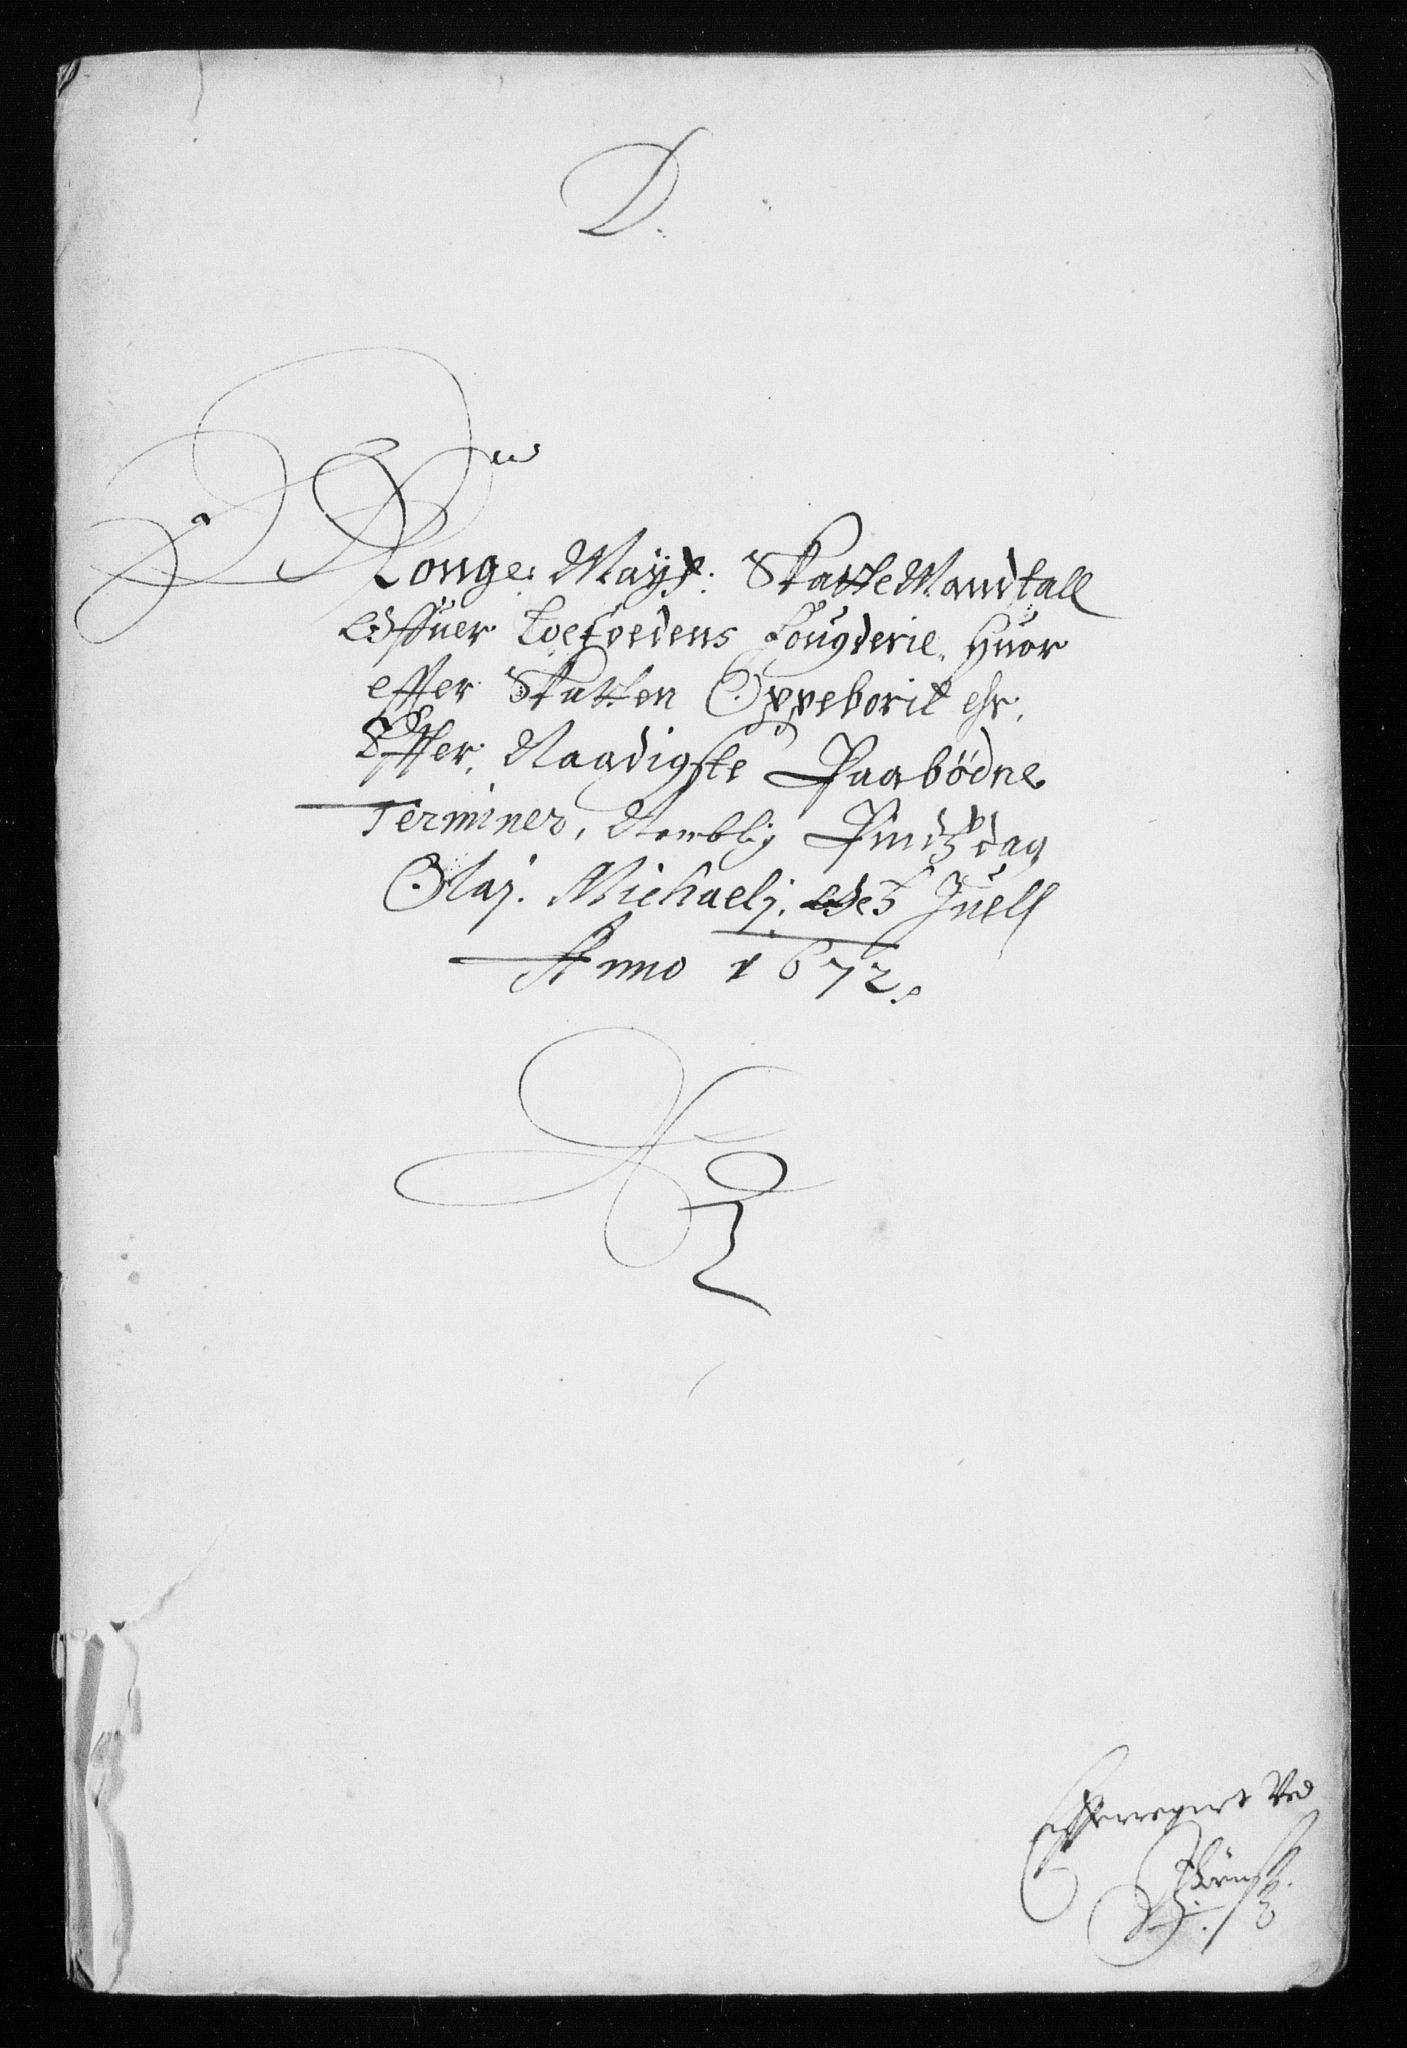 D.
Konge: Mayt: Skatte Mandtall
Offuer Loefoedens Fougderie, Huor
effter Skatten Oppeborit ehr,
Effter, Naadigste Paabödne
Terminer, Nemblig Pindsdag
Olaj. Michaelj. Och Juell
Anno 1672.
Efterregnet Ved